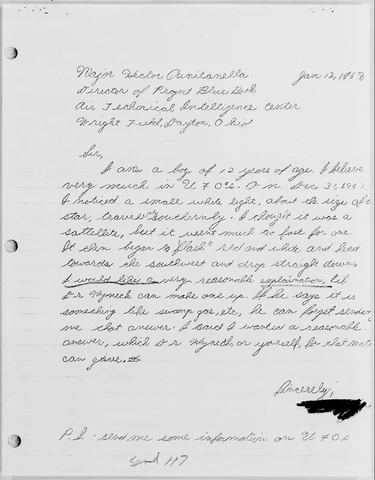 Major Hector Quintanella Jan 12, 1968
Director of Project Blue Book
Air Technical Intelligence Center
Wright Field, Dayton, Ohio
Sir,
I am a boy of 12 years of age. I believe
very much in U F O's. On Dec 31, 1967,
I noticed a small white light, about the size of a
star, travel "Southernly. I thought it was a
sattellite, but it went much to fast for one.
It then began to flash" red and white and head
towards the southwest and drop straight down.
I would like a very reasonable explaination, let
Dr Hynech can make one up. If he says it is
something like swamp gas, etc, he can forget sending
me that answer. I said I wanted a reasonable
answer, which Dr Hynech, or yourself, for that matter
can give.
Sincerely,
P.S - send me some information on U F Os
Send 117